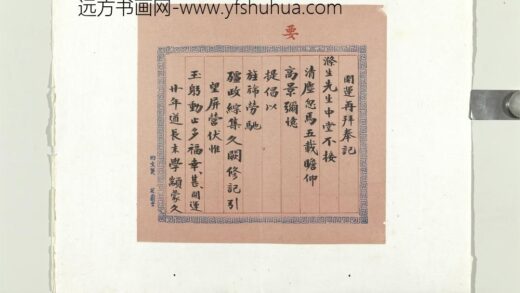 远方书画网-www.yfshuhua.com
要
開運再拜奉記
滌生先生中堂不接
清塵忽焉五載瞻仰
高景彌憶
提倡以
旌旆勞馳
政綜集久闕修記引
望屏營伏惟
玉躬動止多福幸甚開運
廿年道長末學顓蒙久